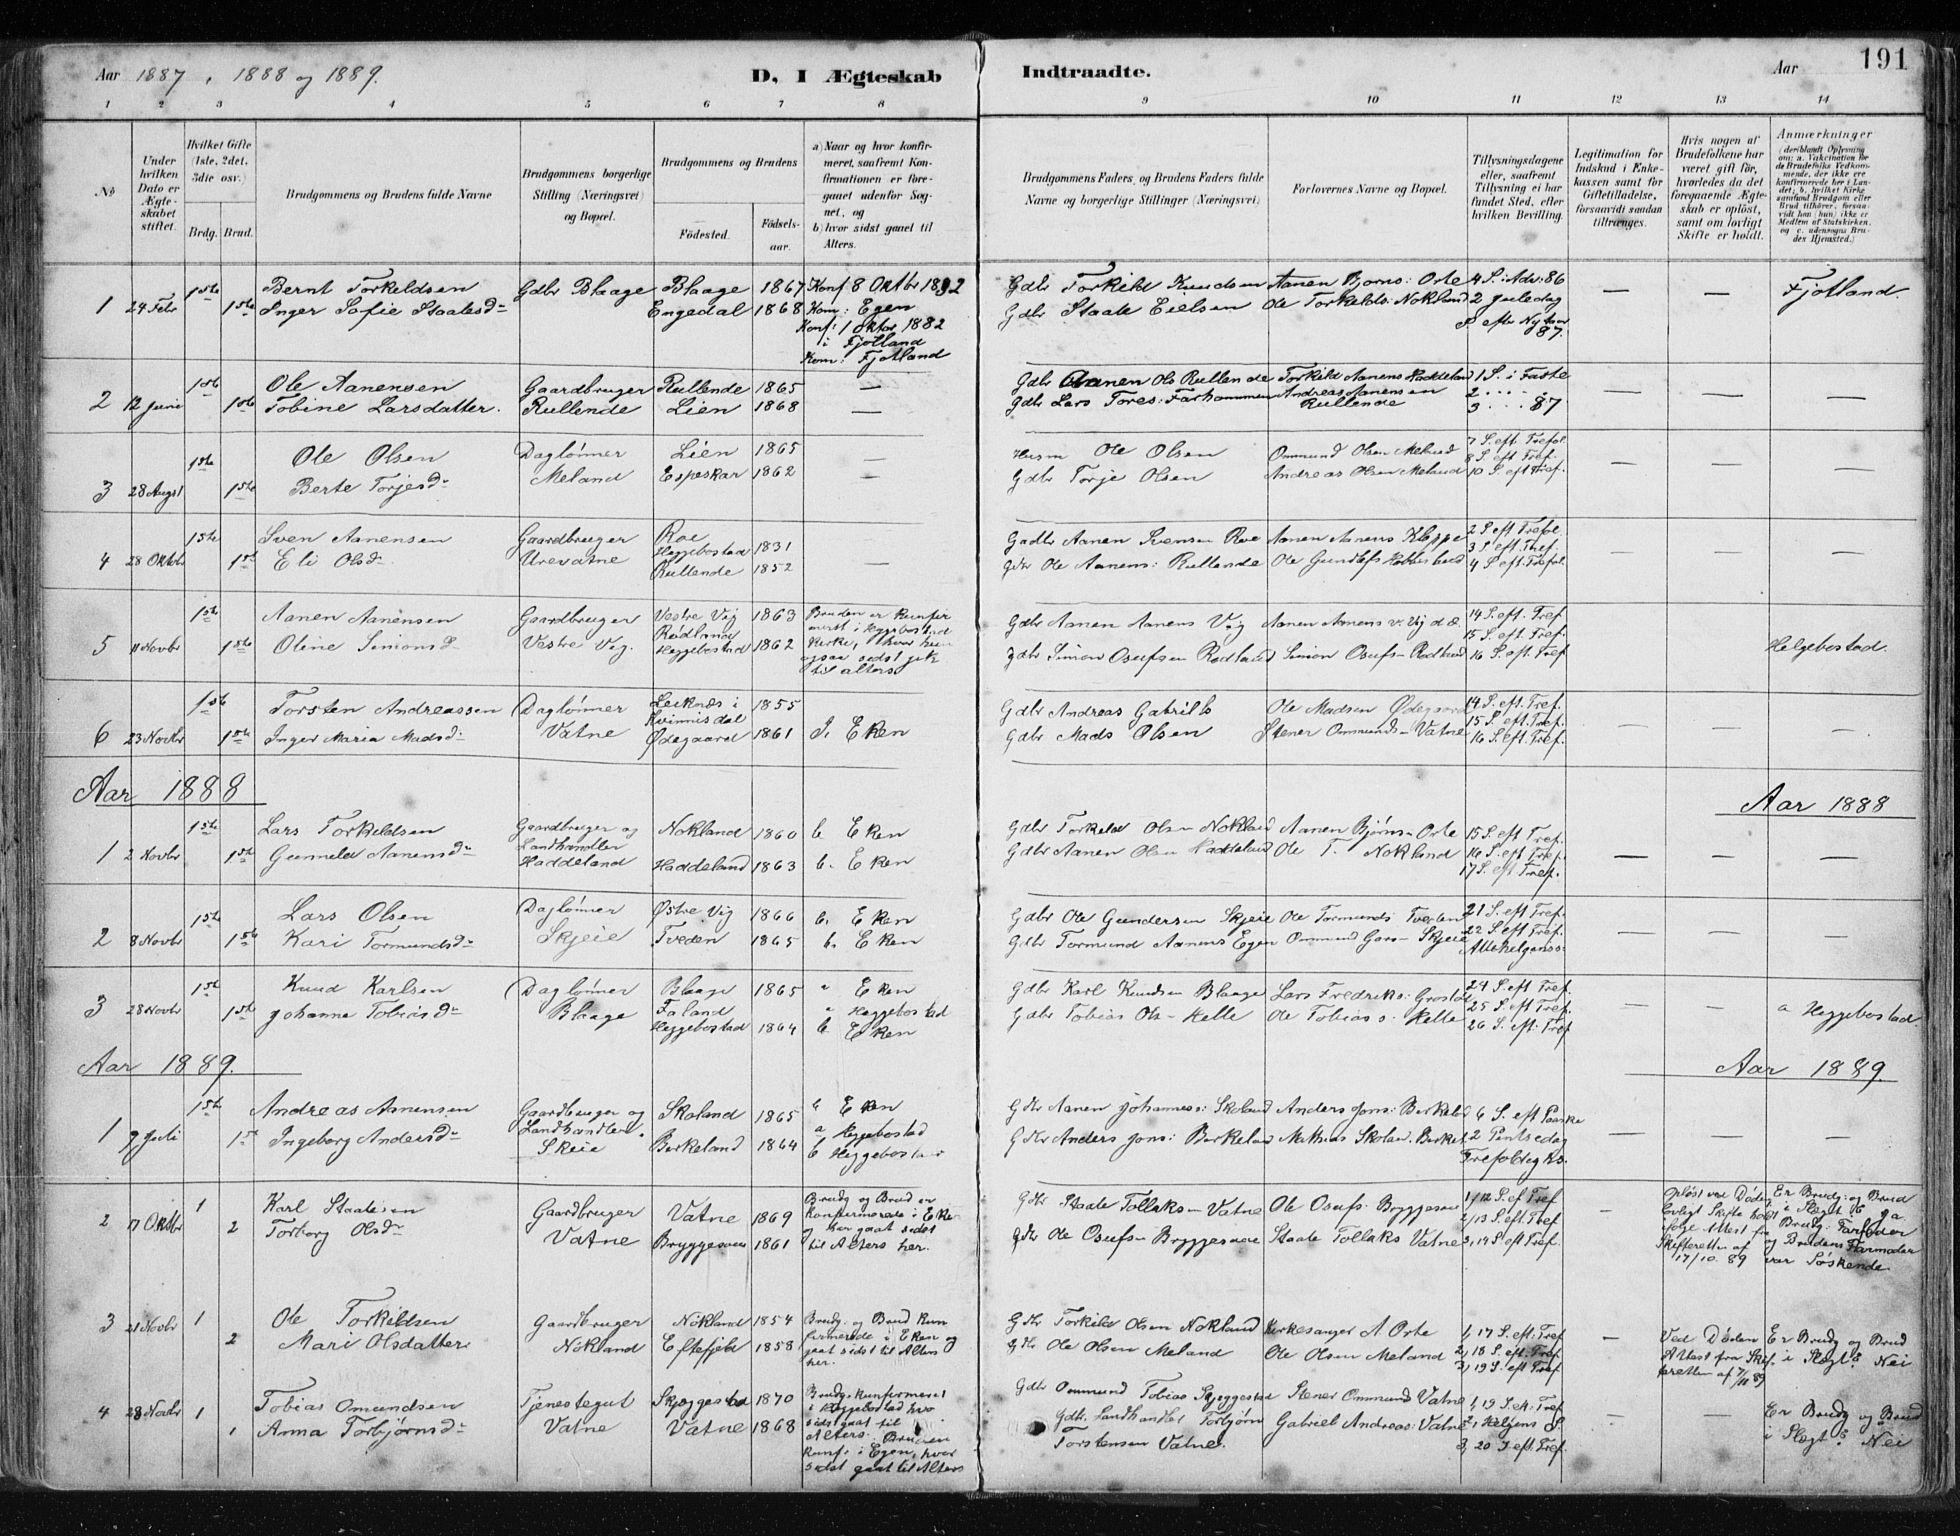 Aar 1887, 1888 og 1889.
D, I Ægteskab Indtraadte.
Aar
191
1 2 3 4 5 6 7 8 9 10 11 12 13 14
No
Under hvilken Dato er Ægteskabet stiftet.
Hvilket Gifte (1ste, 2det, 3die osv.)
Brdg. Brud.
Brudgommens og Brudens fulde Navne
Brudgommens borgerlige Stilling (Næringsvei) og Bopæl.
Brudgommens og Brudens
Fødested.
Fødselsaar.
a) Naar og hvor konfirmeret, saafremt Konfirmationen er foregaaet udenfor Sognet, og
b) hvor sidst gaaet til Alters.
Brudgommens Faders, og Brudens Faders fulde Navne og borgerlige Stillinger (Næringsvei)
Forlovernes Navne og Bopæl.
Tillysningsdagene eller, saafremt Tillysning ei har fundet Sted, efter hvilken Bevilling.
Legitimation for Indskud i Enkekassen samt for Giftetilladelse, forsaavidt saadan tiltrænges.
Hvis nogen af Brudefolkene har været gift før, hvorledes da det foregaaende Ægteskab er opløst, samt om lovligt Skifte er holdt.
Anmærkninger (deriblandt Oplysning om: a. Vakcination for de Brudefolks Vedkommende, der ikke ere konfirmerede her i Landet; b, hvilket Kirkesamfund Brudgom eller Brud tilhører, forsaavidt han (hun) ikke er Medlem af Statskirken, og c. udensogns Brudes Hjemsted.)
1 24 Febr 1ste Bernt Torkeldsen Gdbr Blaage Blaage 1867 Konf 8 Oktbr 1882 Gdbr Torkild Knudsen Aanen Bjorns: Orte 4 S. i Adv: 86 — — Fjotland.
1ste Inger Sofie Staalesdr Engedal 1868 Kom: Egen Gdbr Staale Eielsen Ole Torkelds: Nokland 2 Juledag
Konf: 1 oktbr 1882 S efter Nytaar
i Fjotland 87.
Kom: Fjotland
2 12 Juni 1ste Ole Aanensen Gaardbruger Rullende 1865 — Gdbr Aanen Ols Rullende Torkild Aanens Haddeland 1 S. i Faste — — —
1ste Tobine Larsdatter. Rullende Lien 1868 — Gdbr Lars Tores: Farhommen Andreas Aanensen 2 . . . .
Rullende 3 . . . 87
3 28 Augst 1ste Ole Olsen Daglönner Lien 1865 — Husm Ole Olsen Ommund Olsen Meland 7 S. eft. Trefol. — — —
1ste Berte Torjesdr Meland Espeskar 1862 — Gdbr Torje Olsen Andreas Olsen Meland 8 S. eft Tref.
10 S. eft Tref.
4 28 Oktbr 1ste Sven Aanensen Gaardbruger Roe — Gadbr Aanen Svensen Roe Aanen Aanens Kloppe 2 S eft Trefol. — — —
1ste Eli Olsdr Urevatne Heggebostad 1831 3 S. eft. Tref.
Rullende 1852 — Gdbr Ole Aanens: Rullende Ole Gundlefs 4 S. eft. Trefol.
5 11 Novbr 1ste Aanen Aanensen Gaardbruger Vestre Vig 1863 Bruden er Kunfirmeret i Heggebostad Kirke, hvor hun ogsaa sidst gik til alters. Gdbr Aanen Aanens Vig Aanen Aanens v. Vig 14 S. eft. Tref
1ste Oline Simonsdr Vestre Vig. Rödland Heggebostad 1862 Gdbr Simon Osufsen Rodland Simon Osufs- Rodland 15 S. eft. Tref. Helgebostad.
16 S. eft. Tref
6 23 Novbr 1ste Torsten Andreassen Daglönner Leiknæs i Kvinnisdal 1855 Gdbr Andreas Gabriels Ole Madsen Ödegaard 14 S. eft. Tref. — — —
1ste Inger Maria Madsdr Vatne Ödegaard 1861 I, Eken Gdbr Mads Olsen Stener Ommunds- Vatne 15 S. eft. Tref
16 S. eft. Tref.
Aar 1888 Aar 1888
1 2 Novbr 1ste Lars Torkeldsen Gaardbruger og Nokland 1860 b Eken Gdbr Torkeld Olsn Nokland Aanen Bjørns- Orte 15 S. eft Tref. — — —
1ste Gunneld Aanensdr Landhandler Haddeland Haddeland 1863 b. Eken Gdbr Aanen Olsn Haddeland Ole T. Nokland 16 S. eft Tref.
17 S. eft. Tref.
2 8 Novbr 1ste Lars Olsen Daglönner Østre Vig 1866 b. Eken Gdbr Ole Gundersen Skjeie Ole Tormunds Tveden 21 S. eft Tref. — — —
1ste Kari Tormundsdr Skjeie Tveden 1865 b. Eken Gdbr Tormund Aanens Egen Ommund Skjeie 22 S. eft Tref.
Allehelgenss:
3 28 Novbr 1ste Knud Karlsen Daglönner Blaage 1865 " Eken Gdbr Karl Knudsen Blaage Lars Fredriks: 24 S. eft Tref. — — a Heggebostad.
1ste Johanne Tobiasdr Blaage Faland Heggebostad 1864 a Heggebostad b Eken Gdbr Tobias Ols- Helle Ole Tobiass. Helle 25 S. eft Tref.
26 S. eft. Tref
Aar 1889. Aar 1889.
1 7 Juli 1ste Andreas Aanensen Gaardbruger og Skoland 1865 b Eken Gdbr Aanen Johannes: Skoland Anders Jons: Birkeld 6 S. eft Paaske — — —
1ste Ingeborg Andersdr Landhandler Skeie Birkeland 1864 a Heggebostad b Heggebostad Gdbr Anders Jons: Birkeland Mathias Skoland 2 Pintsedag
Trefoldigks.
2 17 Oktbr 1 Karl Staalesen Gaardbruger Vatne 1869 Brudg og Brud er konfirmerede i Eken og har gaat sidst til Alters her. Gdbr Staale Tollaks- Vatne Ole Osufs: Bryggesaa 1/12 S. ef. Tref — Opløst ved Døden Lovligt Skifte holdt ifølge Attest fra Skifteretten af 17/10. 89 Er Brudg: og Brud i Slægt? Ja Brudg: Farfader og Brudens Farmoder var Søskende.
2 Torborg Olsdr Vatne Bryggesaa 1861 Gdbr Ole Osufs- Bryggesaae Staale Tollaks Vatne 2/13 S. eft. Tref
3, 14 S. eft Tref.
3 21 Novbr 1 Ole Torkildsen Gaardbruger Nökland 1854 Brudg. og Brud kunfirmerede i Eken og gaat sidst til Alters her. Gdbr Torkild Olsen Nokland Kirkesanger A Orte 1, 17 S. eft: Tref — Ved Døden Attest fra Skifteretten af 7/11 89 Er Brudg og Brud i Slægt? Nei
2 Mari Olsdatter Nökland Eftefjeld 1858 Gdbr Ole Olsen Meland Ole Olsen Meland 2, 18 S. eft. Tref
3, 19 S. eft Tref
4 28 Novbr 1 Tobias Omundsen Tjenestegut Skjeggestad 1870 Brudg. kunfirmeret i Heggebostad hvor sidst gaat til Alters. Bruden konf: i Egen, hvor sidst gaat til Alters Gdbr Ommund Tobias Skjeggestad Stener Ommunds Vatne 1, 19 S. eft. Tref — — Er Brudg og Brud i Slægt? Nei
1 Anna Torbjørnsdr Vatne Vatne 1868 Gdbr. Landhandler Torbjørn Torstensen Vatne. Gabriel Andreas: Vatne 2, Helgens S.
3, 20 S eft. Tref.